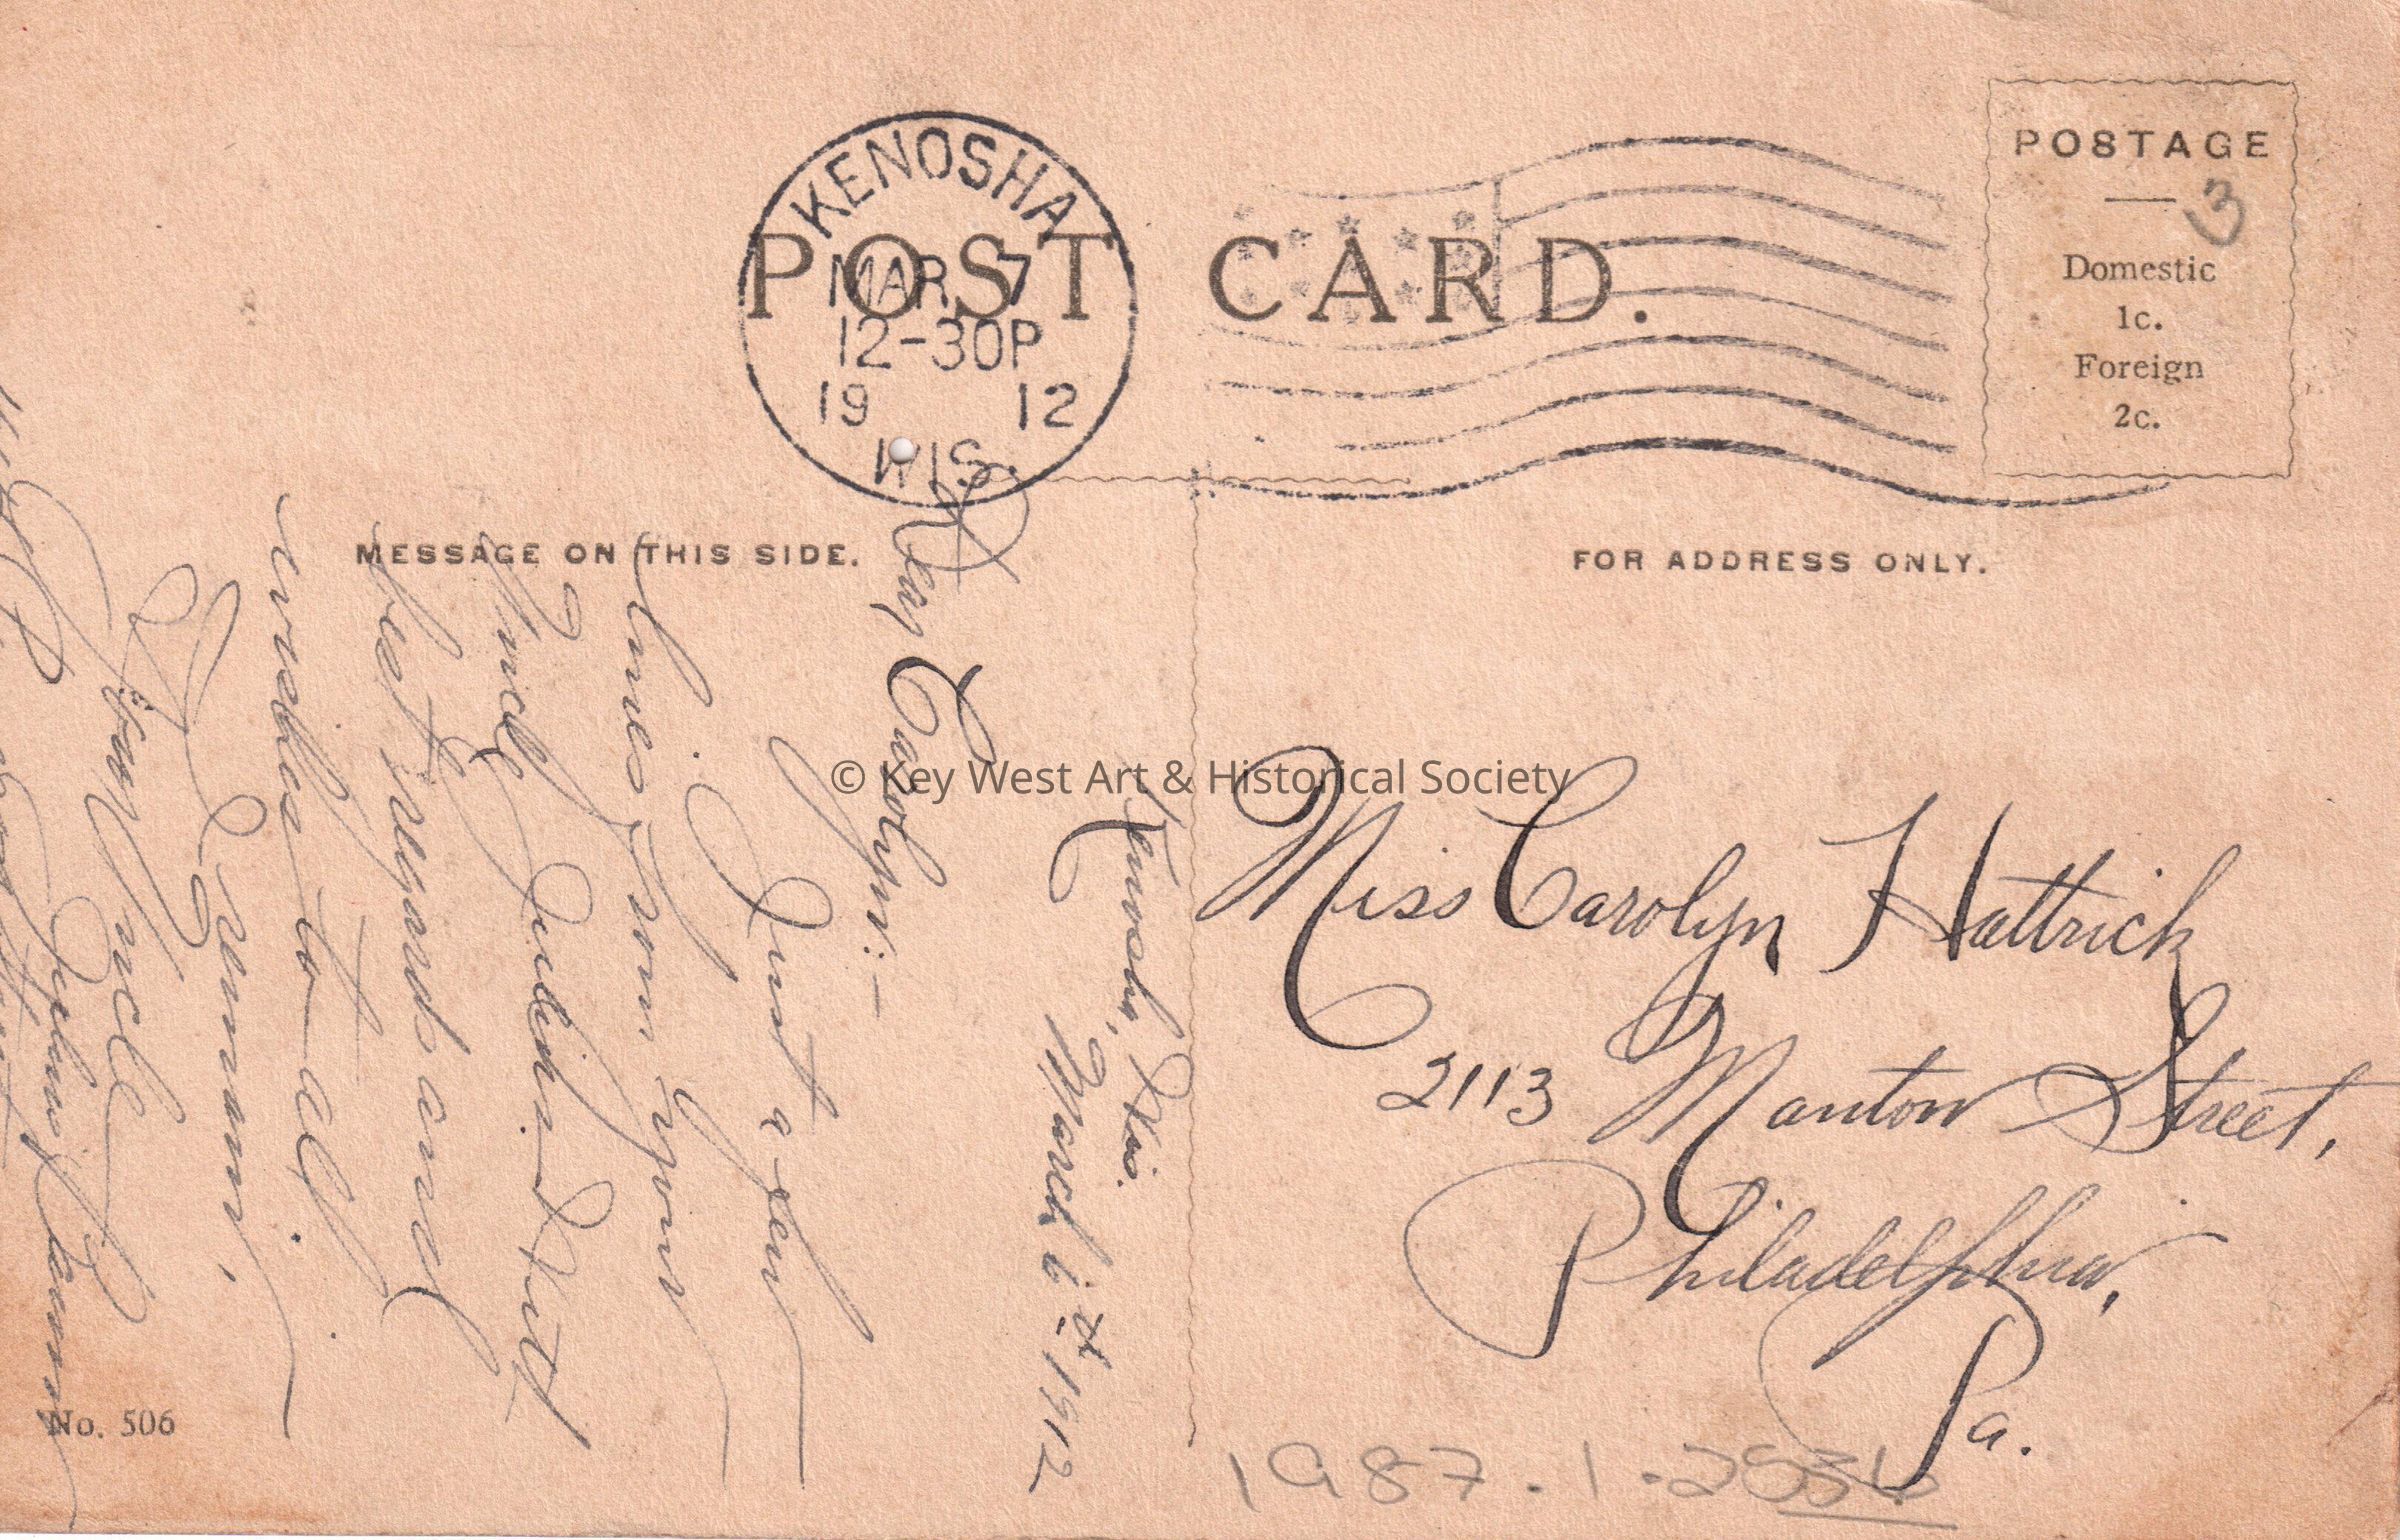 POST CARD.
KENOSHA
MAR 7
12-30P
19 12
WIS.
POSTAGE
3
Domestic
1c.
Foreign
2c.
MESSAGE ON THIS SIDE.
FOR ADDRESS ONLY.
Kenosha, Wis.
March 6th 1912
Dear Carolyn:-
Just a few
lines from your
Uncle Julius. With
best regards and
wishes to all
I remain,
Your Uncle
Julius
Miss Carolyn Hattrick
2113 Manton Street,
Philadelphia,
Pa.
No. 506
1987.1.2536
© Key West Art & Historical Society